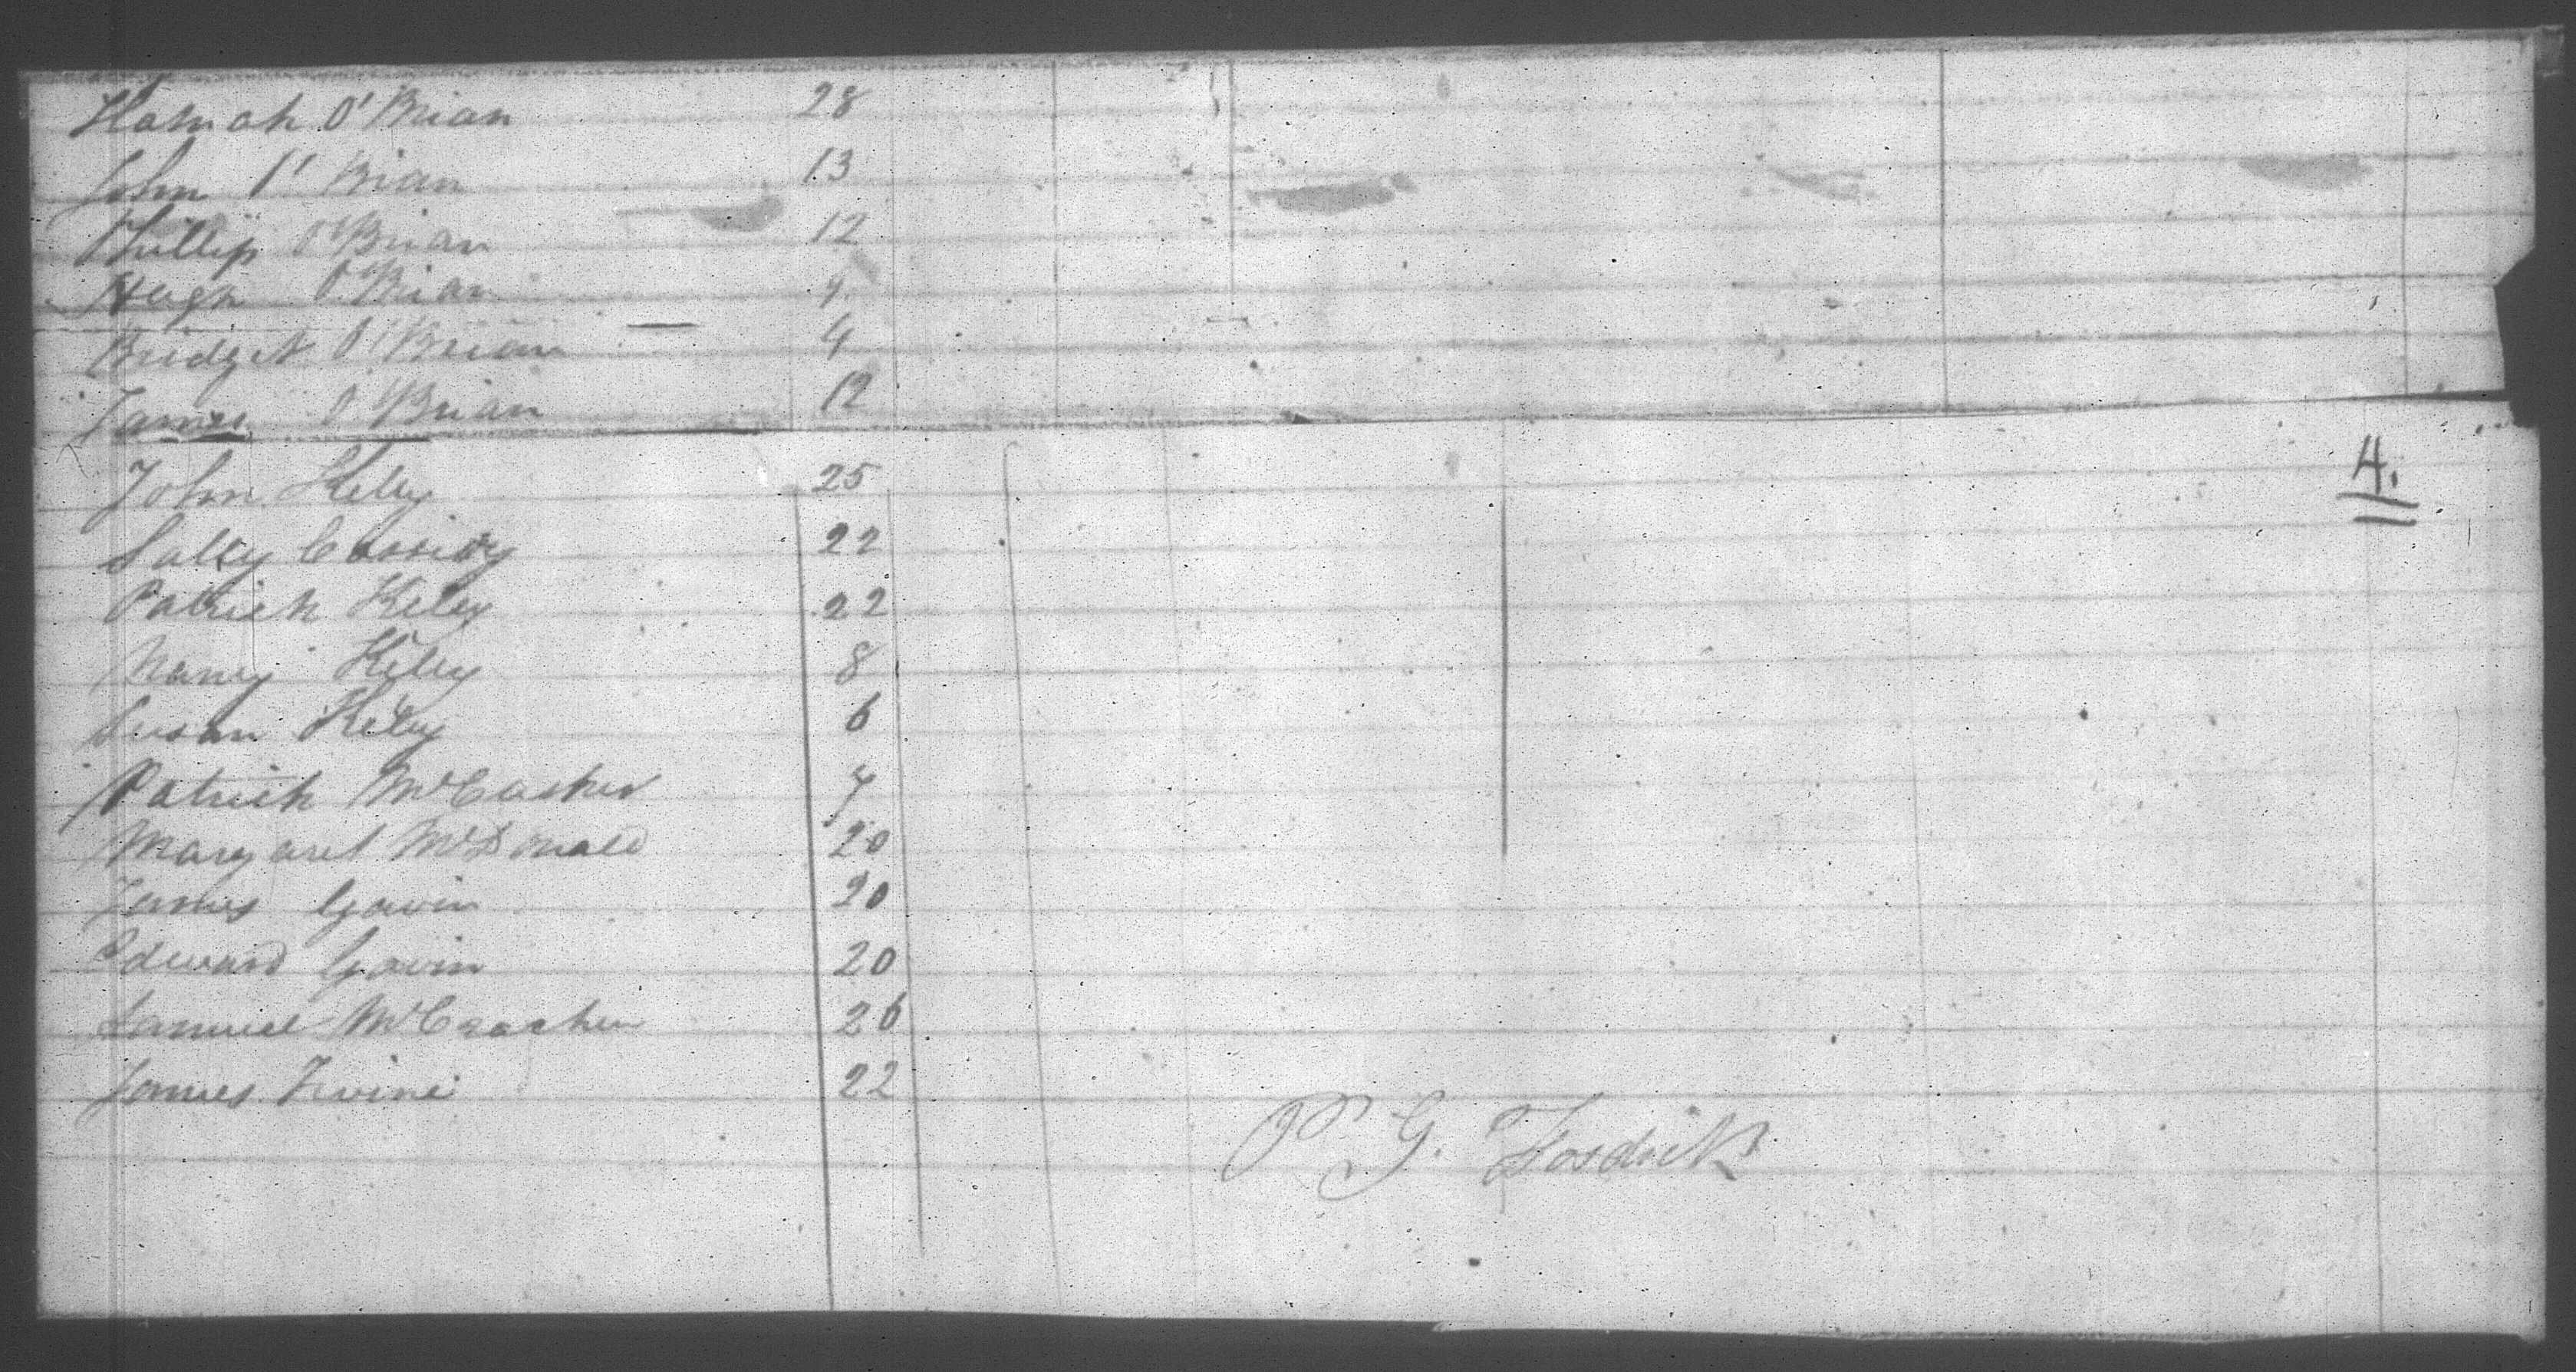 Hannah O'Brian 28
John O'Brian 13
Phillip O'Brian 12
Hugh O'Brian 9
Bridget O'Brian 4
James O'Brian 12
John Kelly 25
4.
Sally Cassidy 22
Patrick Kiley 22
Nancy Kiley 8
Susan Kiley 6
Patrick 7
Margaret McDonald 20
James Gavin 20
Edward Gavin 20
Samuel 26
James Irvine 22
P G. Fosdick